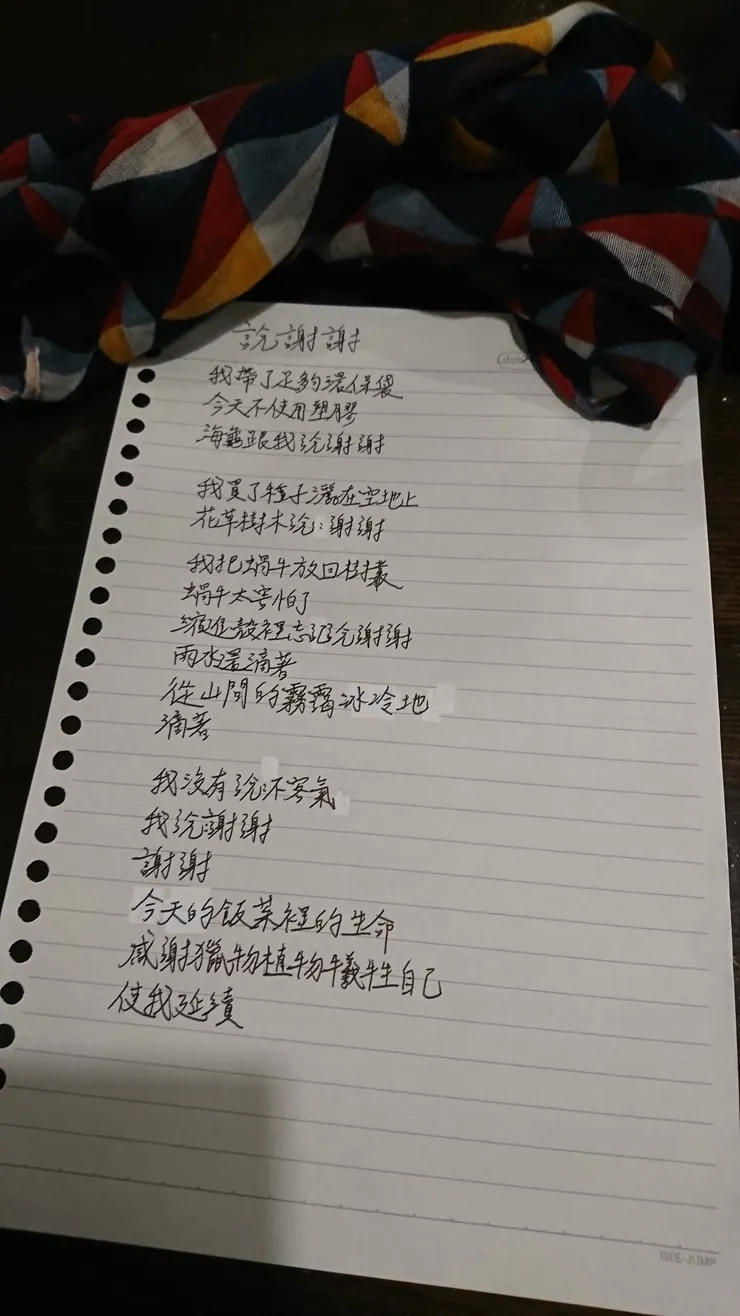 說謝謝
我帶了足夠環保袋
今天不使用塑膠
海龜跟我說謝謝
我買了種子灑在空地上
花草樹木說：謝謝
我把蝸牛放回樹叢
蝸牛太害怕了
縮進殼裡忘記說謝謝
雨水還滴著
從山間的霧靄冰冷地
滴著
我沒有說不客氣
我說謝謝
謝謝
今天的飯菜裡的生命
感謝獵物植物犧牲自己
使我延續
GEE-JUMP